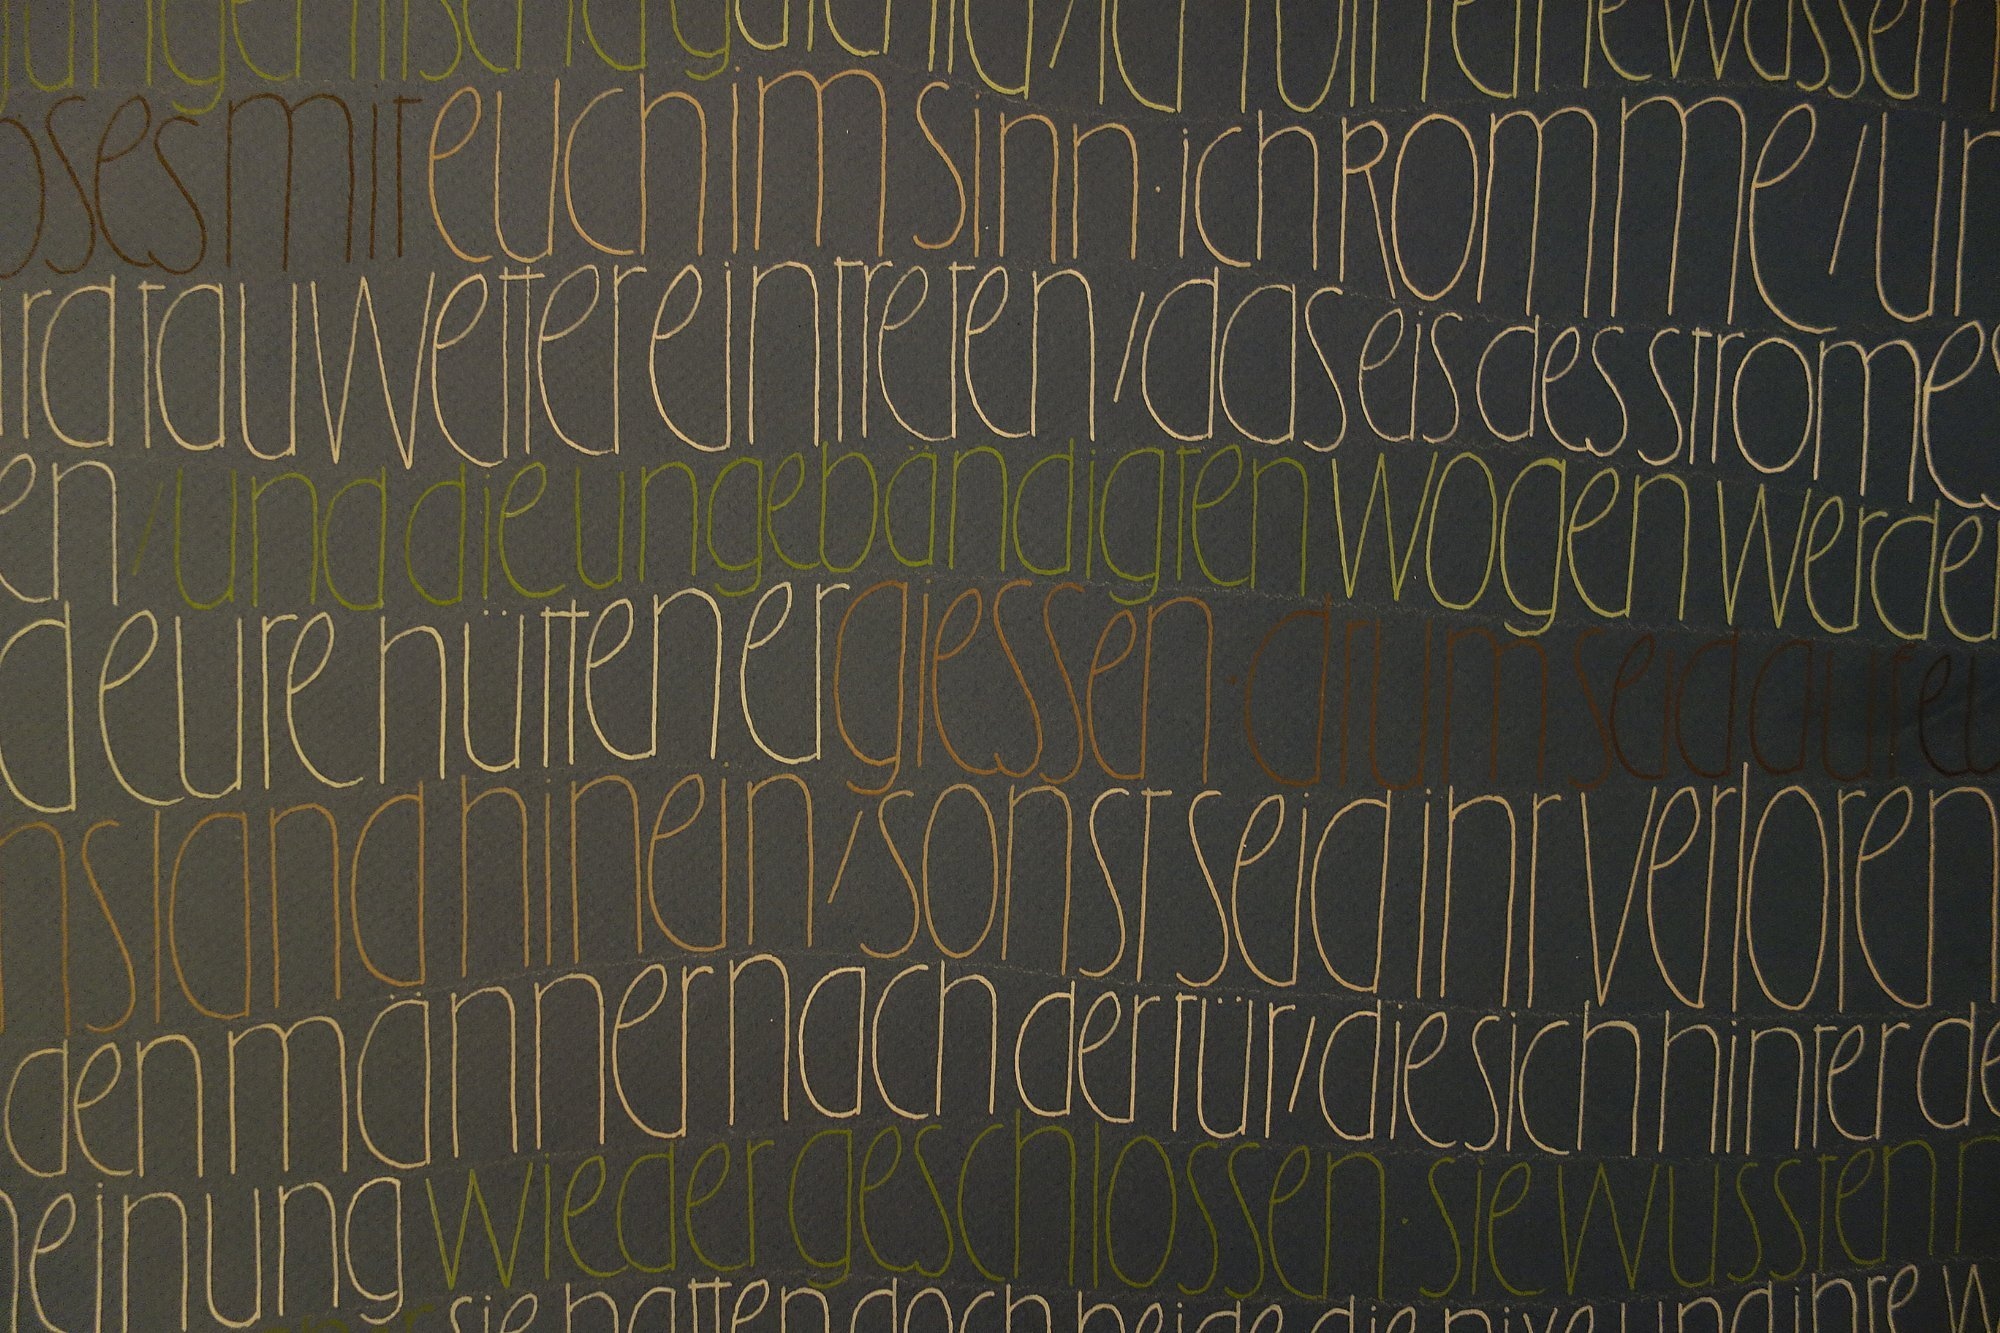 dich
oses mit euch im sinn · ich komme / un
ird tauwetter eintreten / das eis des stromes
en / und die ungebändigten wogen werden
d eure hütten ergiessen · drum seid auf eu
ns land hinein / sonst seid ihr verloren
den männer nach der tür / die sich hinter de
heinung wieder geschlossen · sie wussten n
sie hatten doch beide die nixe und ihre w